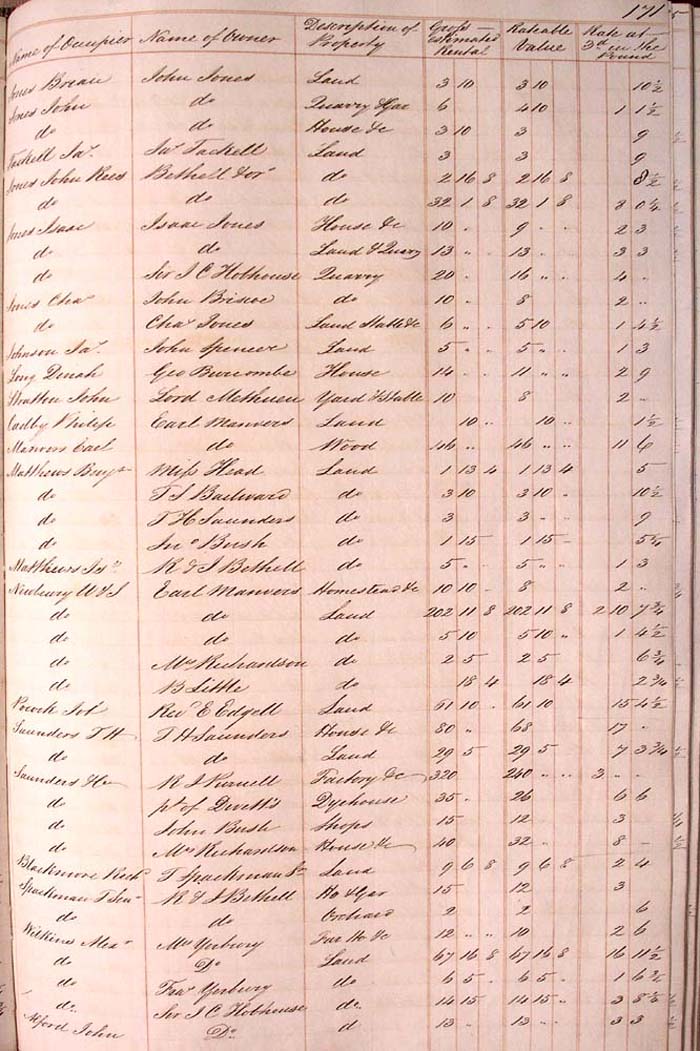 171
Name of Occupier Name of Owner Description of Property Gross Estimated Rental Rateable Value Rate at 3d in the Pound
Jones John Jones Land 3 10 3 10 10 1/2
Jones John do Quarry &Gar 6 4 10 1 1 1/2
do do House &c 3 10 3 9
Tackell Jas. Tackell Land 3 3 9
Jones John Rees Bethell & ors do 2 16 8 2 16 8 8 1/2
do do do 32 1 8 32 1 8 8 0 1/4
Jones Isaac Isaac Jones House &c 10 9 2 3
do do Land & Quarry 13 13 3 3
do Sir J C Hobhouse Quarry 20 16 4
Jones Chas John Briscoe do 10 8 2
do Chas Jones Land Stable &c 6 5 10 1 4 1/2
Johnson Jas. John Spencer Land 5 5 1 3
Long Dinah Geo Burcombe House 14 11 2 9
Stratton John Lord Methuen Yard & Stable 10 8 2
Cadby Philip Earl Manvers Land 10 10 1 1/2
Manvers Earl do Wood 46 46 11 6
Matthews Benjn Miss Head Land 1 13 4 1 13 4 5
do T S Bailward do 3 10 3 10 10 1/2
do T H Saunders do 3 3 9
do Jno Bush do 1 15 1 15 5 1/4
Matthews R & J Bethell do 5 5 1 3
Newbury W & S Earl Manvers Homestead &c 10 10 8 2
do do Land 202 11 8 202 11 8 2 10 7 3/4
do do do 5 10 5 10 1 4 1/2
do Mrs Richardson do 2 5 2 5 6 3/4
do B Little do 18 4 18 4 2 3/4
Pocock Revd E Edgell Land 61 10 61 10 15 4 1/2
Saunders T H T H Saunders House &c 80 68 17
do do Land 29 5 29 5 7 3 3/4
Saunders & Co R J Purnell Factory &c 320 240 3
do Dyehouse 35 26 6 6
do John Bush Shops 15 12 3
do Mrs Richardson House &c 40 32 8
Blackmore Richd T Spackman Sn Land 9 6 8 9 6 8 2 4
Spackman T Senr R & J Bethell Ho & Gar 15 12 3
do do Orchard 2 2 6
Wilkins Alexr Mrs Yerbury Far Ho &c 12 10 2 6
do Do Land 67 16 8 67 16 8 16 11 1/2
do Fras Yerbury do 6 5 6 5 1 6 3/4
do Sir J C Hobhouse do 14 15 14 15 3 8 1/4
Alford John Do d 13 13 3 3